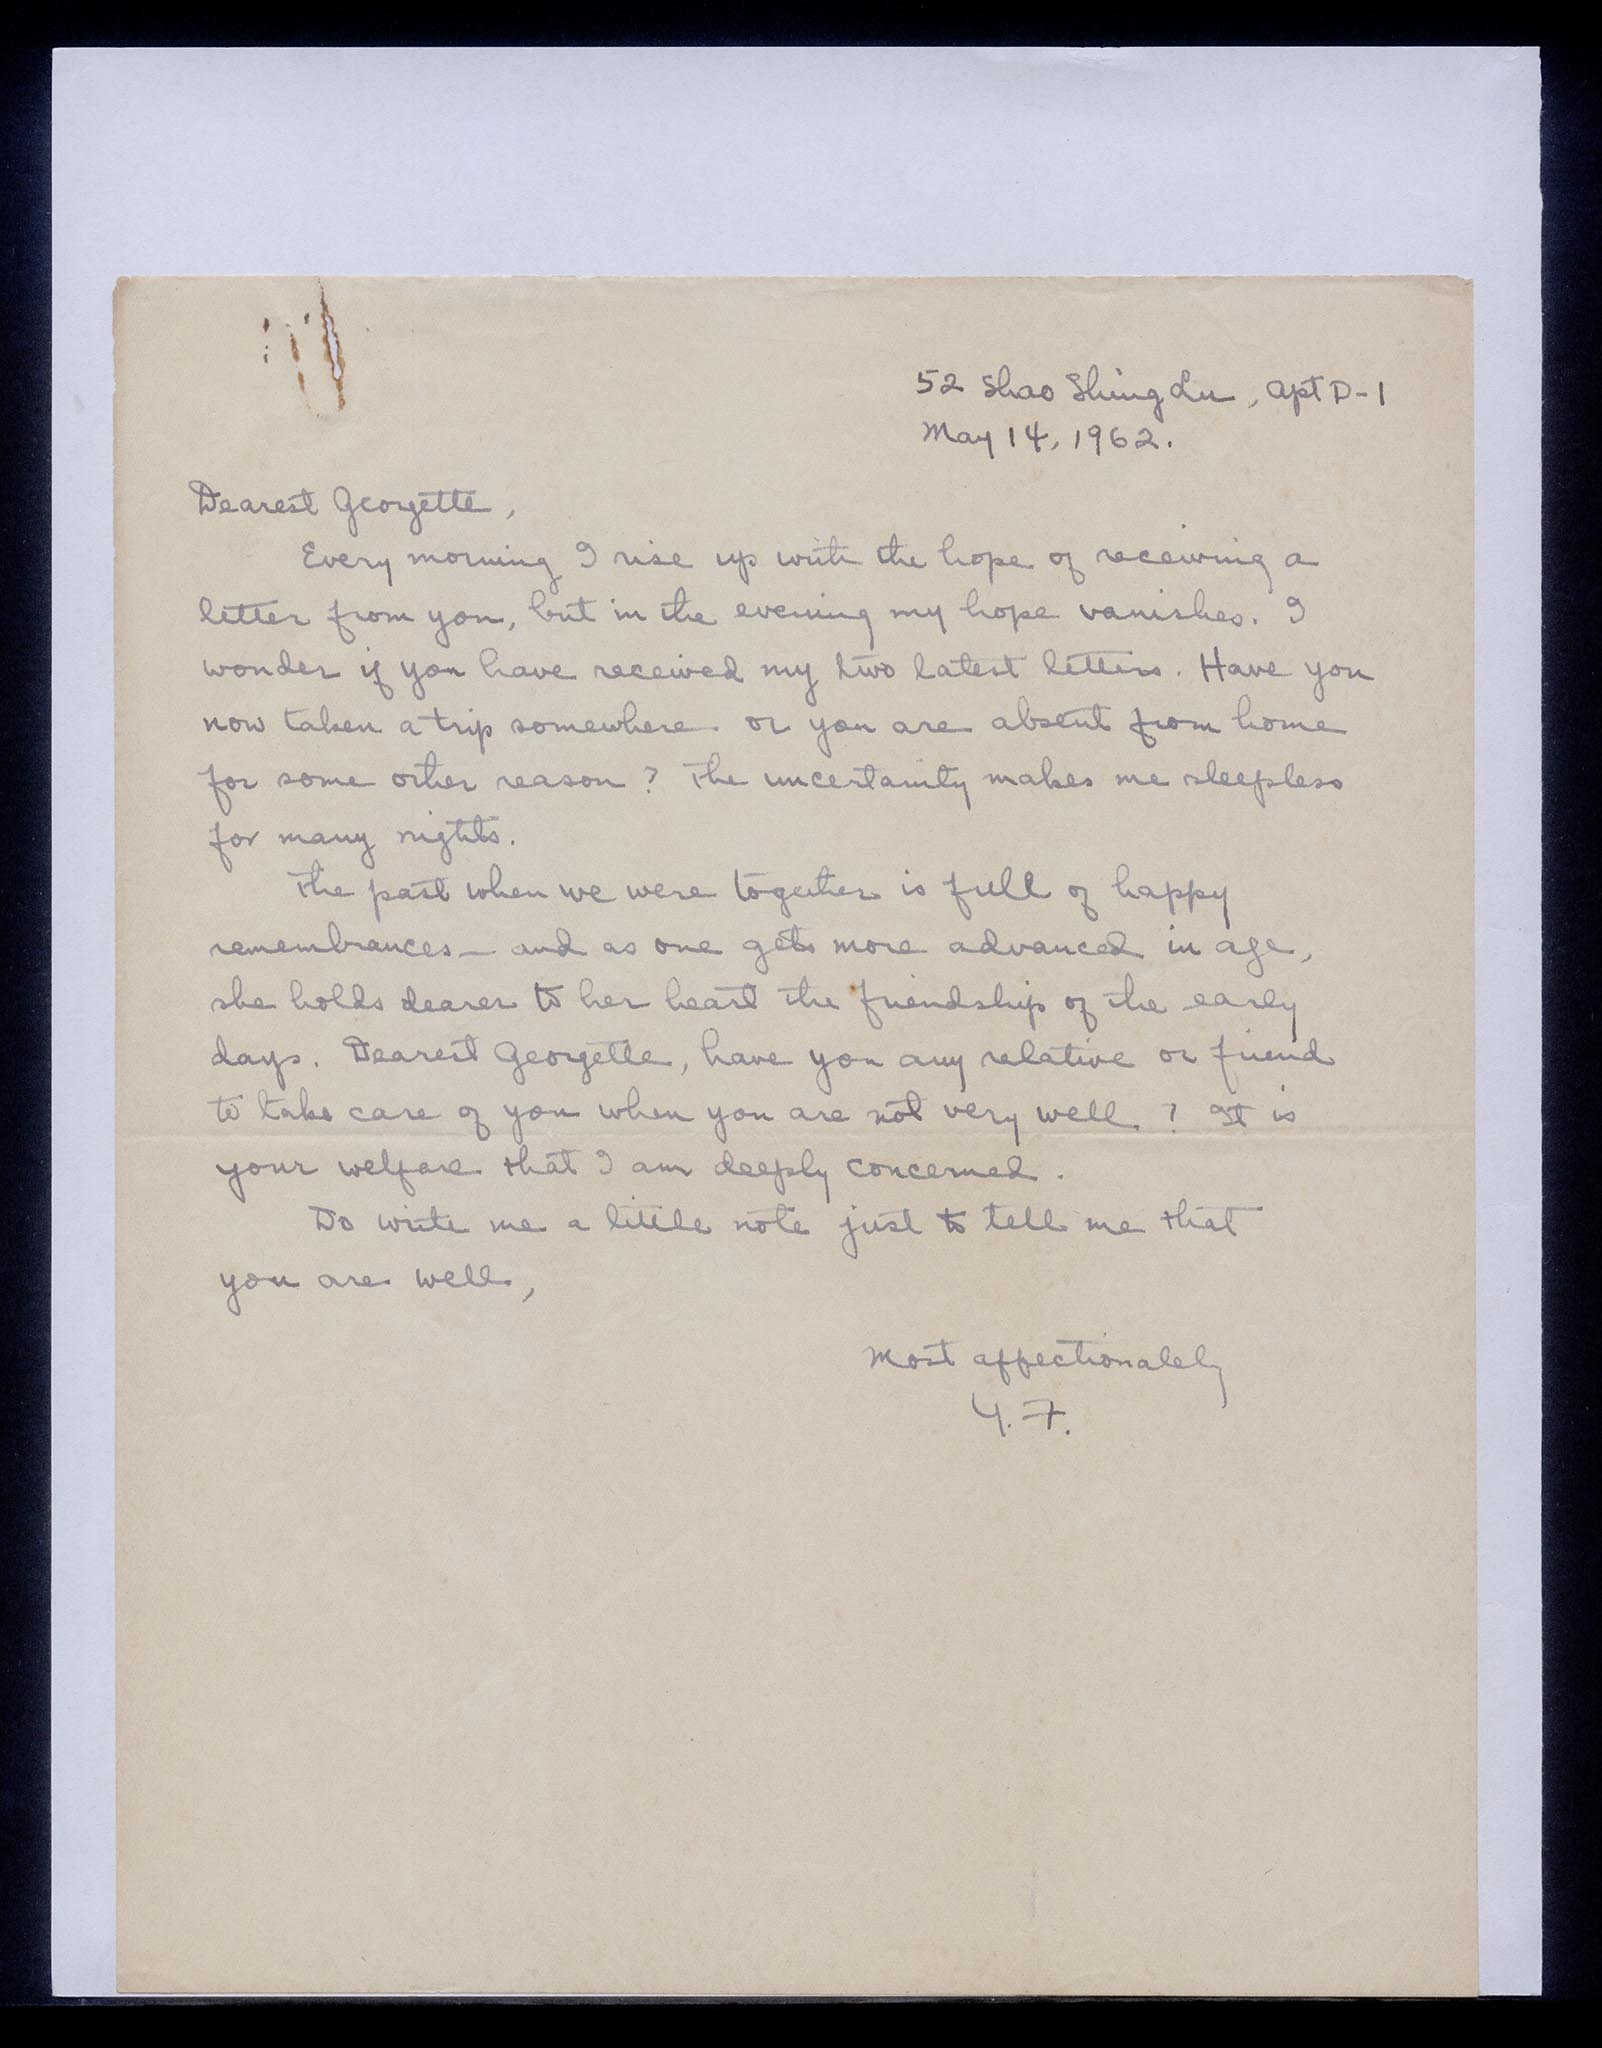 52 Shao Shing Lu, Apt D-1
May 14, 1962.
Dearest Georgette,
Every morning I rise up with the hope of receiving a
letter from you, but in the evening my hope vanishes. I
wonder if you have received my two latest letters. Have you
now taken a trip somewhere or you are absent from home
for some other reason? The uncertainty makes me sleepless
for many nights.
The past when we were together is full of happy
remembrances — and as one gets more advanced in age,
she holds dearer to her heart the friendship of the early
days. Dearest Georgette, have you any relative or friend
to take care of you when you are not very well? It is
your welfare that I am deeply concerned.
Do write me a little note just to tell me that
you are well,
Most affectionately
Y. F.